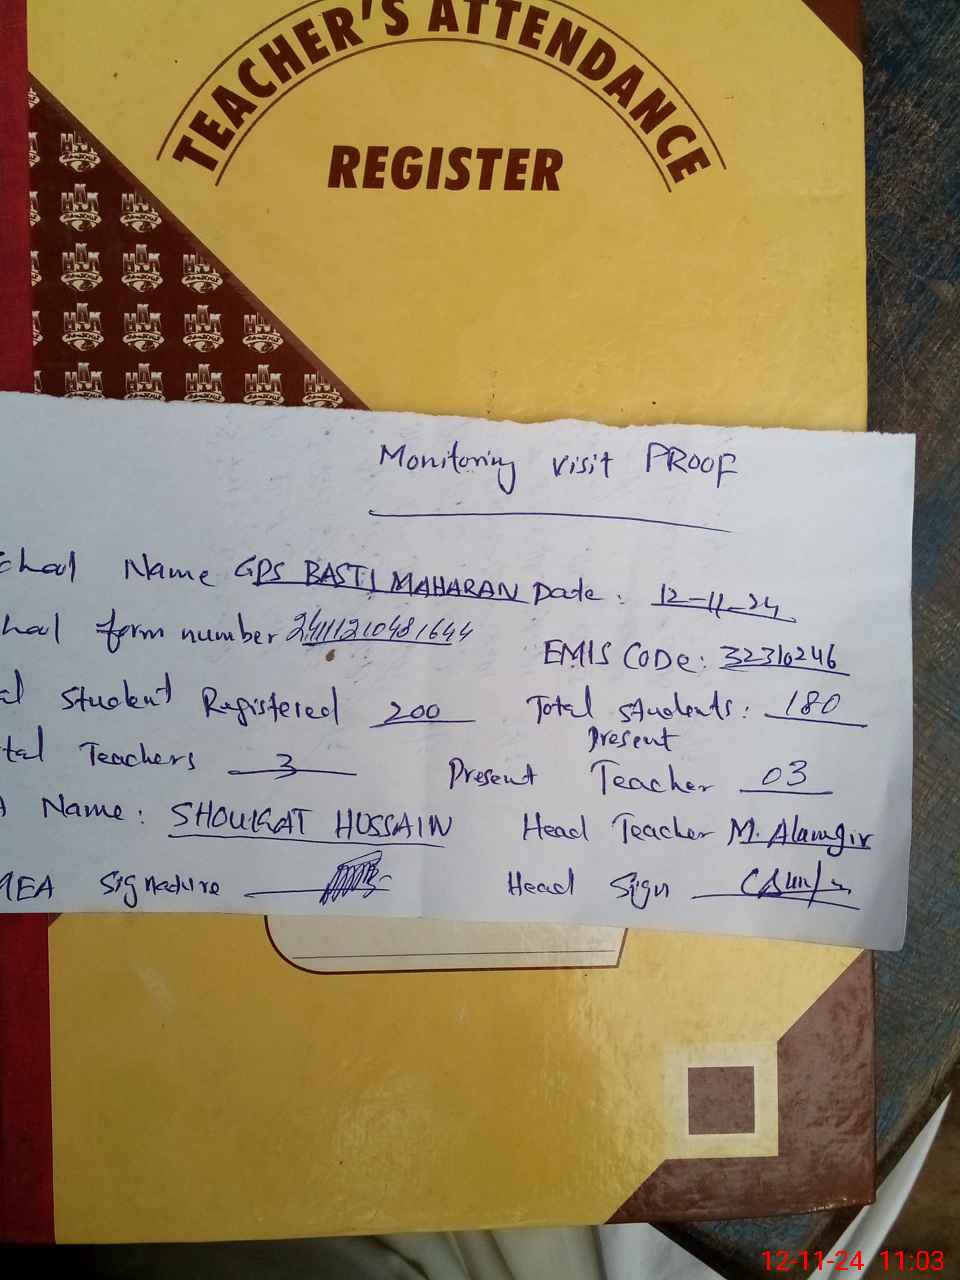 TEACHER'S ATTENDANCE
REGISTER
Monitoring visit PROOF
School Name GPS BASTI MAHARAN Date: 12-11-24
form number 24111210481644
EMIS CODE: 32310246
Student Registered 200 Total students: 180
Present
Teachers 3 Present Teacher 03
Name: SHOUKAT HUSSAIN Head Teacher M. Alamgir
MEA Signature Head Sign
12-11-24 11:03